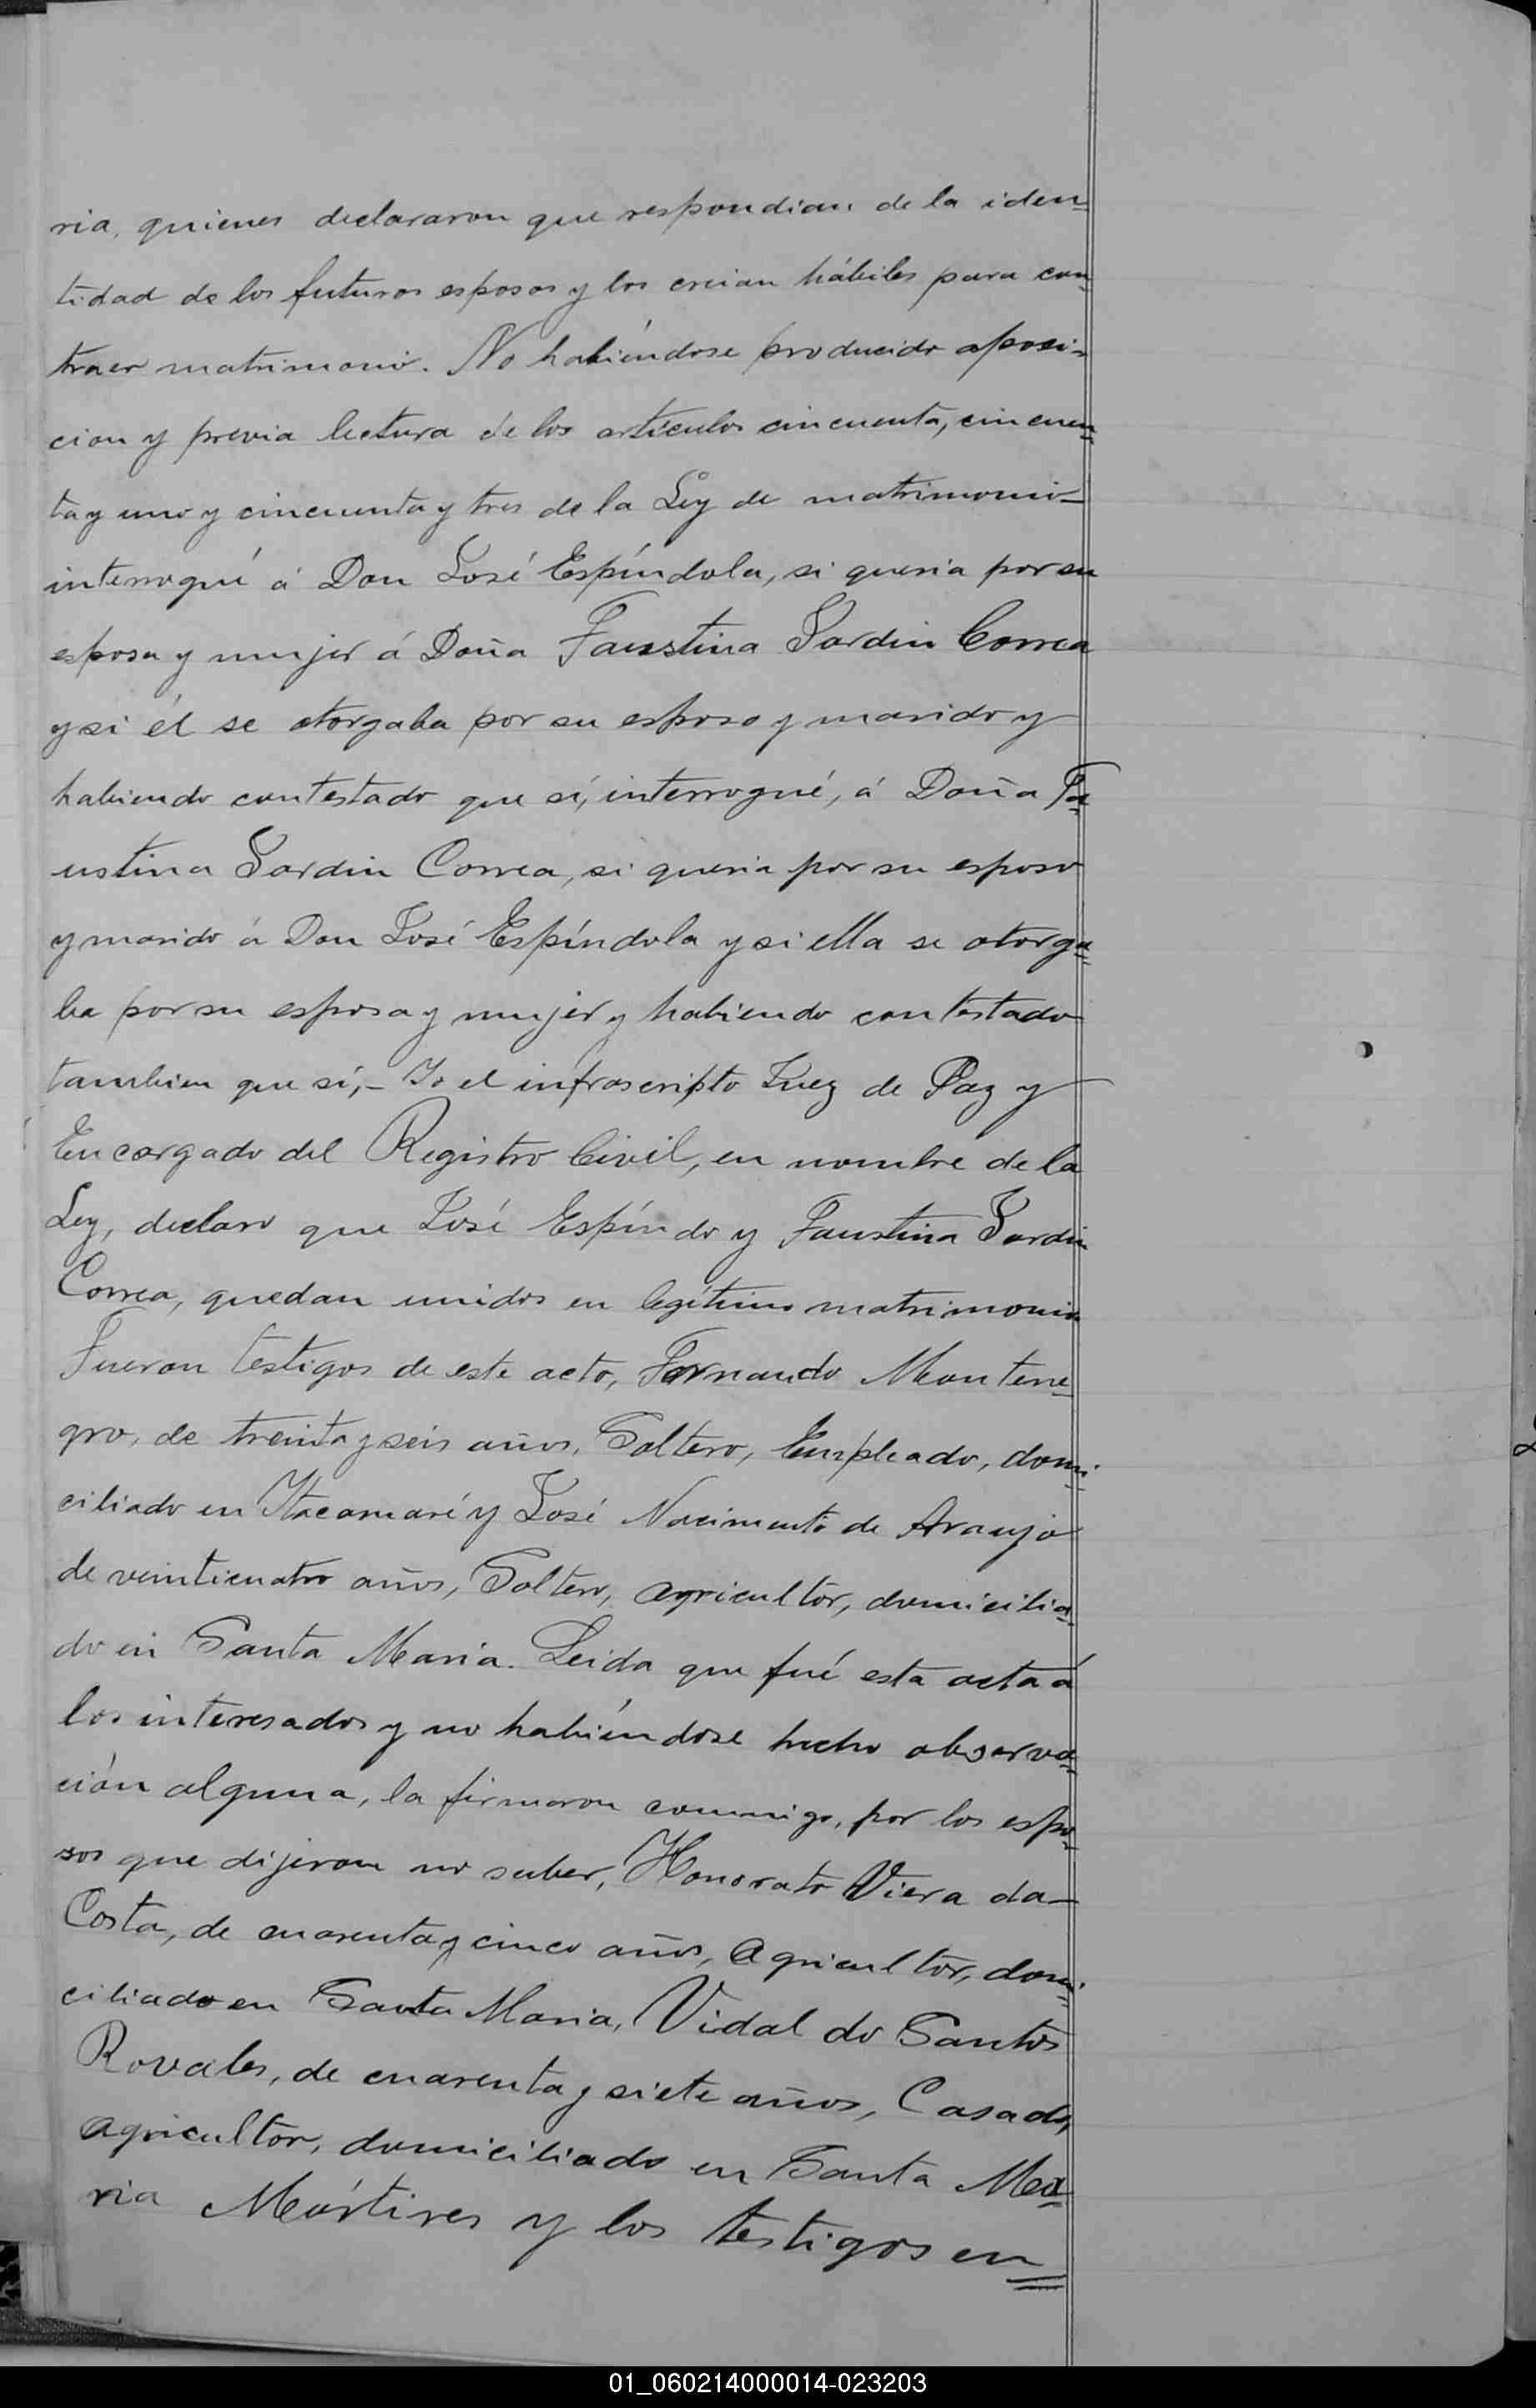 ria, quienes declararon que respondian de la iden=
tidad de los futuros esposos y los creian hábiles para con=
traer matrimonio. No habiéndose producido oposi=
cion y previa lectura de los artículos cincuenta, cincuen=
ta y uno y cincuenta y tres de la Ley de matrimonio—
interrogué á Don José Espíndola, si queria por su
esposa y mujer á Doña Faustina Jardin Correa
y si él se otorgaba por su esposo y marido y
habiendo contestado que sí, interrogué, á Doña Fa=
ustina Jardin Correa, si queria por su esposo
y marido á Don José Espíndola y si ella se otorga=
ba por su esposa y mujer y habiendo contestado
tambien que sí,– Yo el infrascripto Juez de Paz y
Encargado del Registro Civil, en nombre de la
Ley, declaro que José Espíndo y Faustina Jardin
Correa, quedan unidos en legítimo matrimonio
Fueron testigos de este acto, Fernando Montene=
gro, de treinta y seis años, Soltero, Empleado, domi=
ciliado en Itacamaré y José Nacimento de Araujo
de veinticuatro años, Soltero, agricultor, domicilia=
do en Santa Maria. Leida que fué esta acta á
los interesados y no habiéndose hecho observa=
ción alguna, la firmaron conmigo, por los espo=
sos que dijeron no saber, Honorato Viera da—
Costa, de cuarenta y cinco años, agricultor, domi=
ciliado en Santa Maria, Vidal do Santos
Rovales, de cuarenta y siete años, Casado,
agricultor, domiciliado en Santa Ma=
ria Mártires y los testigos en
01_060214000014-023203